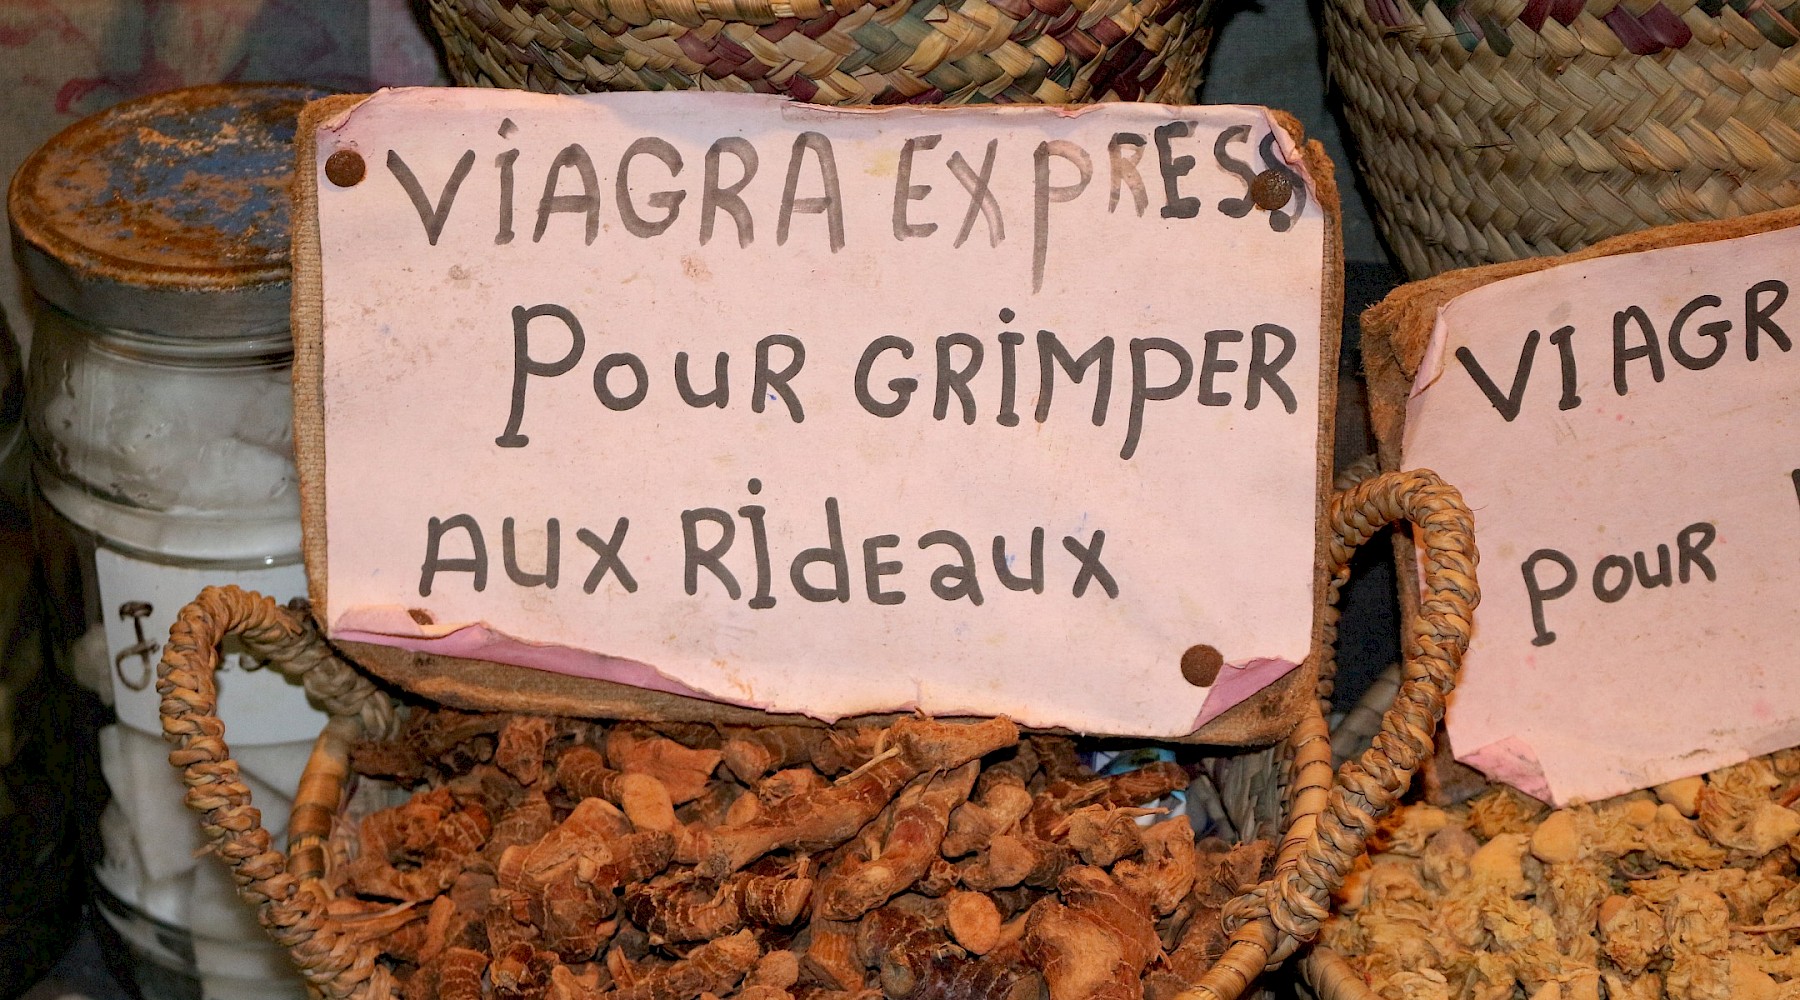 VIAGRA EXPRESS
POUR GRIMPER
AUX RIDEAUX
POUR